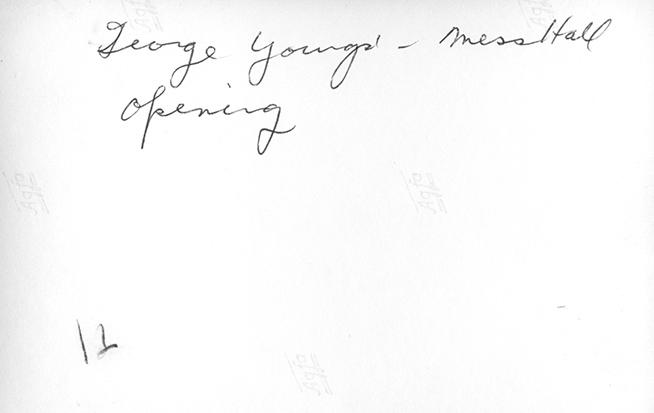 George Youngs' - Mess Hall
Opening
12
Agfa
Agfa
Agfa
Agfa
Agfa